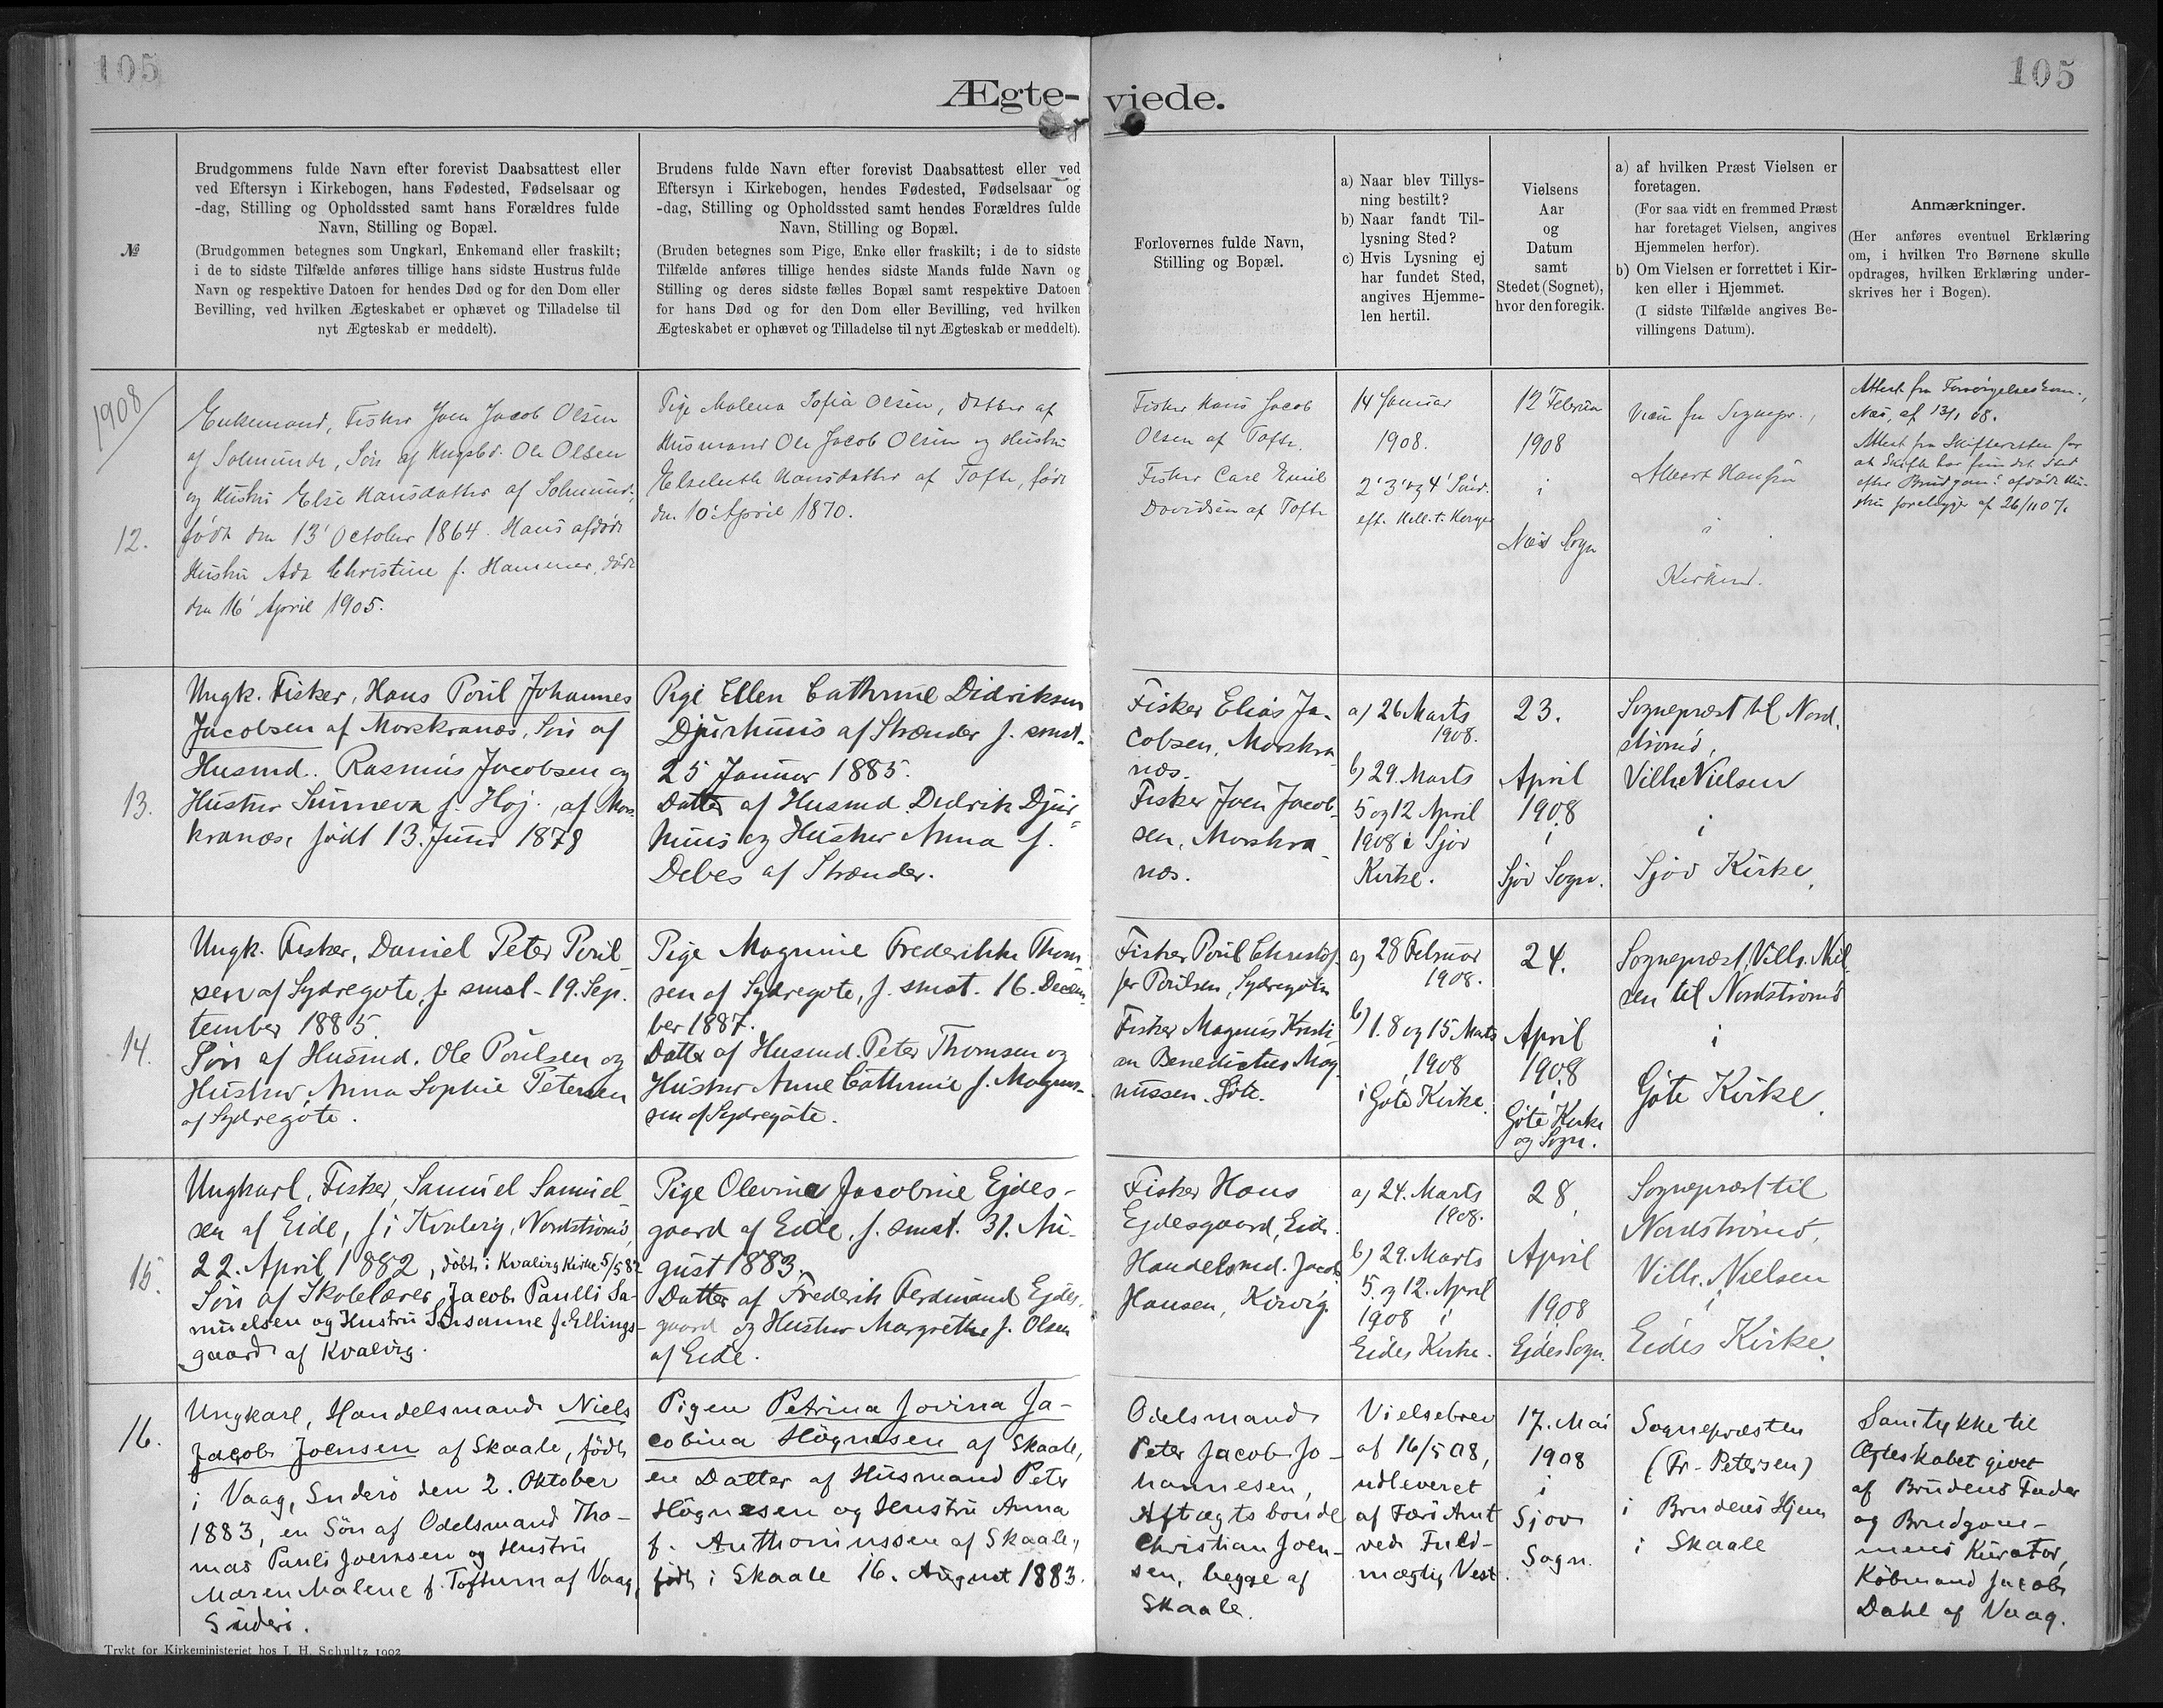 105
105
Ægte-
viede.
№
Brudgommens fulde Navn efter forevist Daabsattest eller
ved Eftersyn i Kirkebogen, hans Fødested, Fødselsaar og
-dag, Stilling og Opholdssted samt hans Forældres fulde
Navn, Stilling og Bopæl.
(Brudgommen betegnes som Ungkarl, Enkemand eller fraskilt;
i de to sidste Tilfælde anføres tillige hans sidste Hustrus fulde
Navn og respektive Datoen for hendes Død og for den Dom eller
Bevilling, ved hvilken Ægteskabet er ophævet og Tilladelse til
nyt Ægteskab er meddelt).
Brudens fulde Navn efter forevist Daabsattest eller ved
Eftersyn i Kirkebogen, hendes Fødested, Fødselsaar og
-dag, Stilling og Opholdssted samt hendes Forældres fulde
Navn, Stilling og Bopæl.
(Bruden betegnes som Pige, Enke eller fraskilt; i de to sidste
Tilfælde anføres tillige hendes sidste Mands fulde Navn og
Stilling og deres sidste fælles Bopæl samt respektive Datoen
for hans Død og for den Dom eller Bevilling, ved hvilken
Ægteskabet er ophævet og Tilladelse til nyt Ægteskab er meddelt).
Forlovernes fulde Navn,
Stilling og Bopæl.
a) Naar blev Tillys-
ning bestilt?
b) Naar fandt Til-
lysning Sted?
c) Hvis Lysning ej
har fundet Sted,
angives Hjemme-
len hertil.
Vielsens
Aar
og
Datum
samt
Stedet (Sognet),
hvor den foregik.
a) af hvilken Præst Vielsen er
foretagen.
(For saa vidt en fremmed Præst
har foretaget Vielsen, angives
Hjemmelen herfor).
b) Om Vielsen er forrettet i Kir-
ken eller i Hjemmet.
(I sidste Tilfælde angives Be-
villingens Datum).
Anmærkninger.
(Her anføres eventuel Erklæring
om, i hvilken Tro Børnene skulle
opdrages, hvilken Erklæring under-
skrives her i Bogen).
1908
12.
Enkemand, Fisker Joen Jacob Olsen
af Solmunde, Søn af Ole Olsen
og Hustru Else Hansdatter af Solmund.
født den 13' October 1864. Hans afdøde
Hustru Ada Christine f. Hammer, død
den 16' April 1905.
Pige Malena Sofia Olsen, Datter af
Husmand Ole Jacob Olsen og Hustru
Elselbeth Hansdatter af Tofte, født
den 10' April 1870.
Fisker Hans Jacob
Olsen af Tofte.
Fisker Carl Emil
Davidsen af Tofte
14 Januar
1908.
2' 3' og 4' Sønd.
eft. Hell. t. Konger
12' Februar
1908
i
Næs Sogn
Albert Hansen
i
Kirken.
Attest fra
Næs, af 13/1 08.
Attest fra Skifteretten for
at Skifte har fundet Sted
efter Brudgom: afdøde Hu-
stru foreligger af 26/11 07.
13.
Ungk. Fisker, Hans Poul Johannes
Jacobsen af Morskranæs, Søn af
Husmd. Rasmus Jacobsen og
Hustru Sunneva f. Høj., af Mors
kranæs, født 13. Juni 1878
Pige Ellen Cathrine Didriksen
Djurhuus af Strænder f. smst.
25 Januar 1885.
Datter af Husmd. Didrik Djur-
huus og Hustru Anna f.
Debes af Strænder.
Fisker Elias Ja-
cobsen, Morskra
næs.
Fisker Joen Jacob-
sen, Morskra-
næs.
a) 26 Marts
1908.
b) 29. Marts
5 og 12 April
1908 i Sjov
Kirke.
23.
April
1908
i
Sjov Sogn.
Sognepræst til Nord.
strømø,
Vilh. Nielsen
i
Sjov Kirke.
14.
Ungk. Fisker, Daniel Peter Poul-
sen af Sydregøte, f. smst. 19. Sep.
tember 1885.
Søn af Husmd. Ole Poulsen og
Hustru, Anna Sophie Petersen
af Sydregøte.
Pige Magnine Frederikke Thom
sen af Sydregøte, f. smst. 16. Decem-
ber 1887.
Datter af Husmd. Peter Thomsen og
Hustru Anne Cathrine f. Magnus-
sen af Sydregøte.
Fisker Poul Christof-
fer Poulsen, Sydregøte
Fisker Magnus Kristi
an Benedictus Mag-
nussen. Gøte.
a) 28 Februar
1908.
b) 1. 8 og 15 Marts
1908
i Gøte Kirke.
24.
April
1908
i
Gøte Kirke
og Sogn.
Sognepræst, Vilh. Niel
sen til Nordstrømø
i
Gøte Kirke.
15.
Ungkarl, Fisker, Samuel Samuel-
sen af Eide, f. i Kvalvig, Nordstrømø,
22. April 1882, døbt i Kvalvig Kirke 5/5 82
Søn af Skolelærer Jacob Paulli Sa-
muelsen og Hustru Susanne f. Ellings-
gaard af Kvalvig.
Pige Olevine Jacobine Ejdes-
gaard af Eide, f. smst. 31. Au-
gust 1883.
Datter af Frederik Ferdinand Ejdes-
gaard og Hustru Margrethe f. Olsen
af Eide.
Fisker Hans
Ejdesgaard, Eide.
Handelsmd. Jacob
Hansen, Kvivig.
a) 24. Marts
1908.
b) 29. Marts
5. og 12. April
1908 i
Eides Kirke.
28.
April
1908
Ejdes Sogn.
Sognepræst til
Nordstrømø,
Vilh. Nielsen
i
Eides Kirke.
16.
Ungkarl, Handelsmand Niels
Jacob Joensen af Skaale, født
i Vaag, Suderø den 2. Oktober
1883, en Søn af Odelsmand Tho-
mas Pauli Joensen og Hustru
Maren Malene f. Toftum af Vaag,
Suderø.
Pigen Petrina Jovina Ja-
cobina Högnesen af Skaale,
en Datter af Husmand Peter
Högnesen og Hustru Anna
f. Anthoniussen af Skaale,
født i Skaale 16. August 1883.
Odelsmand
Peter Jacob Jo-
hannesen,
Aftægtsbonde
Christian Joen-
sen, begge af
Skaale.
Vielsebrev
af 16/5 08,
udleveret
af Færø Amt
ved Fuld-
mægtig Vest.
17. Mai
1908
i
Sjov
Sogn.
Sognepræsten
(Fr. Petersen)
i Brudens Hjem
i Skaale
Samtykke til
Ægteskabet givet
af Brudens Fader
og Brudgom-
mens Kurator,
Købmand Jacob
Dahl af Vaag.
Trykt for Kirkeministeriet hos J. H. Schultz 1902